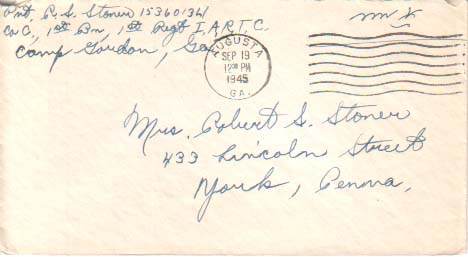 Pvt. R. S. Stoner 15360134
Co C, 1st Bn, 1st Regt I.A.R.T.C.
Camp Gordon, Ga
AUGUSTA
SEP 19
12 PM
1945
GA.
Mrs. Robert S. Stoner
433 Lincoln Street
York, Penna,